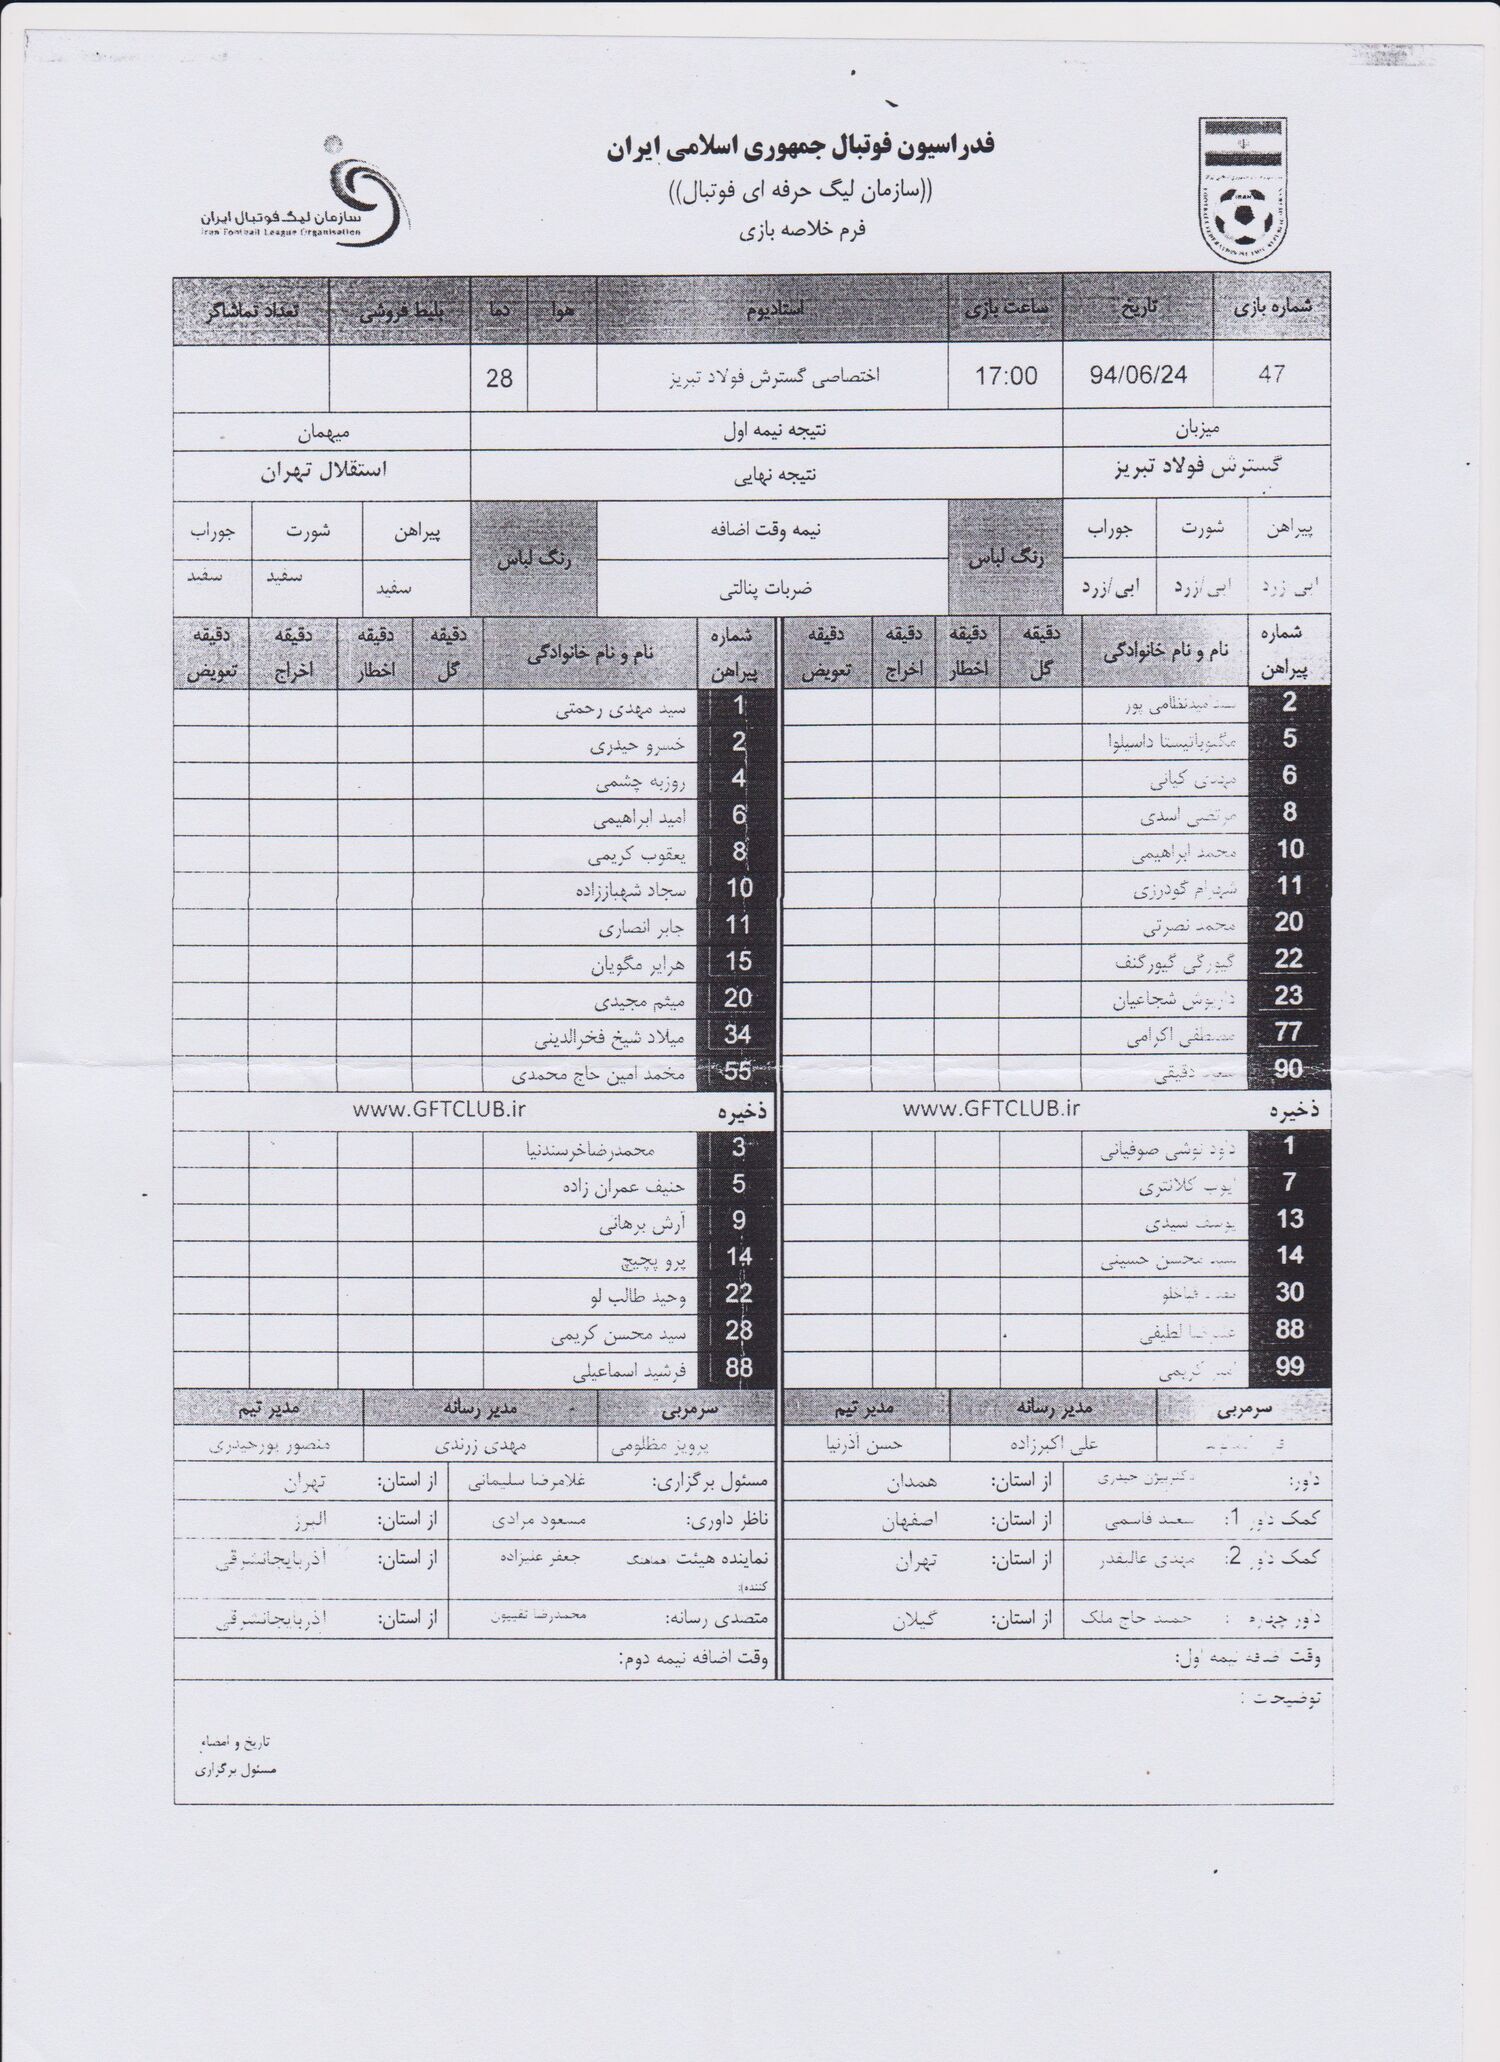 فدراسیون فوتبال جمهوری اسلامی ایران
((سازمان لیگ حرفه ای فوتبال))
فرم خلاصه بازی
سازمان لیگ فوتبال ایران
Iran Football League Organisation
IRAN
شماره بازی تاریخ ساعت بازی استادیوم هوا دما بلیط فروشی تعداد تماشاگر
47 94/06/24 17:00 اختصاصی گسترش فولاد تبریز 28
میزبان نتیجه نیمه اول میهمان
گسترش فولاد تبریز نتیجه نهایی استقلال تهران
پیراهن شورت جوراب رنگ لباس نیمه وقت اضافه رنگ لباس پیراهن شورت جوراب
ابی زرد ابی/زرد ابی/زرد ضربات پنالتی سفید سفید سفید
شماره پیراهن نام و نام خانوادگی دقیقه گل دقیقه اخطار دقیقه اخراج دقیقه تعویض شماره پیراهن نام و نام خانوادگی دقیقه گل دقیقه اخطار دقیقه اخراج دقیقه تعویض
2 پور 1 سید مهدی رحمتی
5 مگنوباتیستا داسیلوا 2 خسرو حیدری
6 مهدی کیانی 4 روزبه چشمی
8 مرتضی اسدی 6 امید ابراهیمی
10 محمد ابراهیمی 8 یعقوب کریمی
11 شهرام گودرزی 10 سجاد شهباززاده
20 محمد نصرتی 11 جابر انصاری
22 گیورگی گیورگنف 15 هرایر مگویان
23 داریوش شجاعیان 20 میثم مجیدی
77 مصطفی اکرامی 34 میلاد شیخ فخرالدینی
90 دقیقی 55 محمد امین حاج محمدی
ذخیره www.GFTCLUB.ir ذخیره www.GFTCLUB.ir
1 داود نوشی صوفیانی 3 محمدرضاخرسندنیا
7 ایوب کلانتری 5 حنیف عمران زاده
13 یوسف سیدی 9 آرش برهانی
14 سید محسن حسینی 14 پرو پچیچ
30 22 وحید طالب لو
88 علیرضا لطیفی 28 سید محسن کریمی
99 کریمی 88 فرشید اسماعیلی
سرمربی مدیر رسانه مدیر تیم سرمربی مدیر رسانه مدیر تیم
علی اکبرزاده حسن آذرنیا پرویز مظلومی مهدی زرندی منصور پورحیدری
داور: دکتربیژن حیدری از استان: همدان مسئول برگزاری: غلامرضا سلیمانی از استان: تهران
کمک داور 1: سعید قاسمی از استان: اصفهان ناظر داوری: مسعود مرادی از استان: البرز
کمک داور 2: مهدی عالیقدر از استان: تهران نماینده هیئت (هماهنگ کننده): جعفر علیزاده از استان: آذربایجانشرقی
داور چهارم : حمید حاج ملک از استان: گیلان متصدی رسانه: محمدرضا نقیبیون از استان: اذربایجانشرقی
وقت اضافه نیمه اول: وقت اضافه نیمه دوم:
توضیحات :
تاریخ و امضاء
مسئول برگزاری